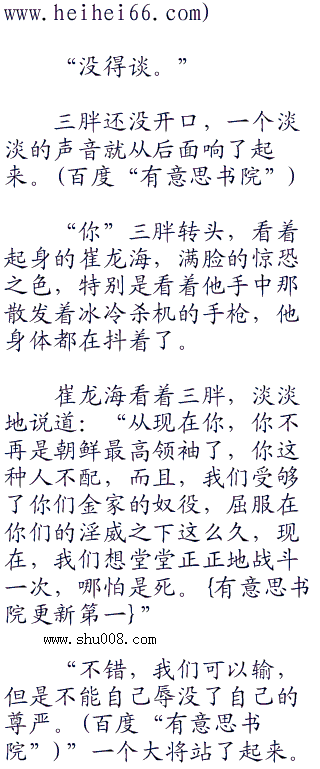 www.heihei66.com)
“没得谈。”
三胖还没开口，一个淡
淡的声音就从后面响了起
来。(百度“有意思书院”)
“你”三胖转头，看着
起身的崔龙海，满脸的惊恐
之色，特别是看着他手中那
散发着冰冷杀机的手枪，他
身体都在抖着了。
崔龙海看着三胖，淡淡
地说道：“从现在你，你不
再是朝鲜最高领袖了，你这
种人不配，而且，我们受够
了你们金家的奴役，屈服在
你们的淫威之下这么久，现
在，我们想堂堂正正地战斗
一次，哪怕是死。{有意思书
院更新第一}”
www.shu008.com
“不错，我们可以输，
但是不能自己辱没了自己的
尊严。(百度“有意思书
院”)”一个大将站了起来。